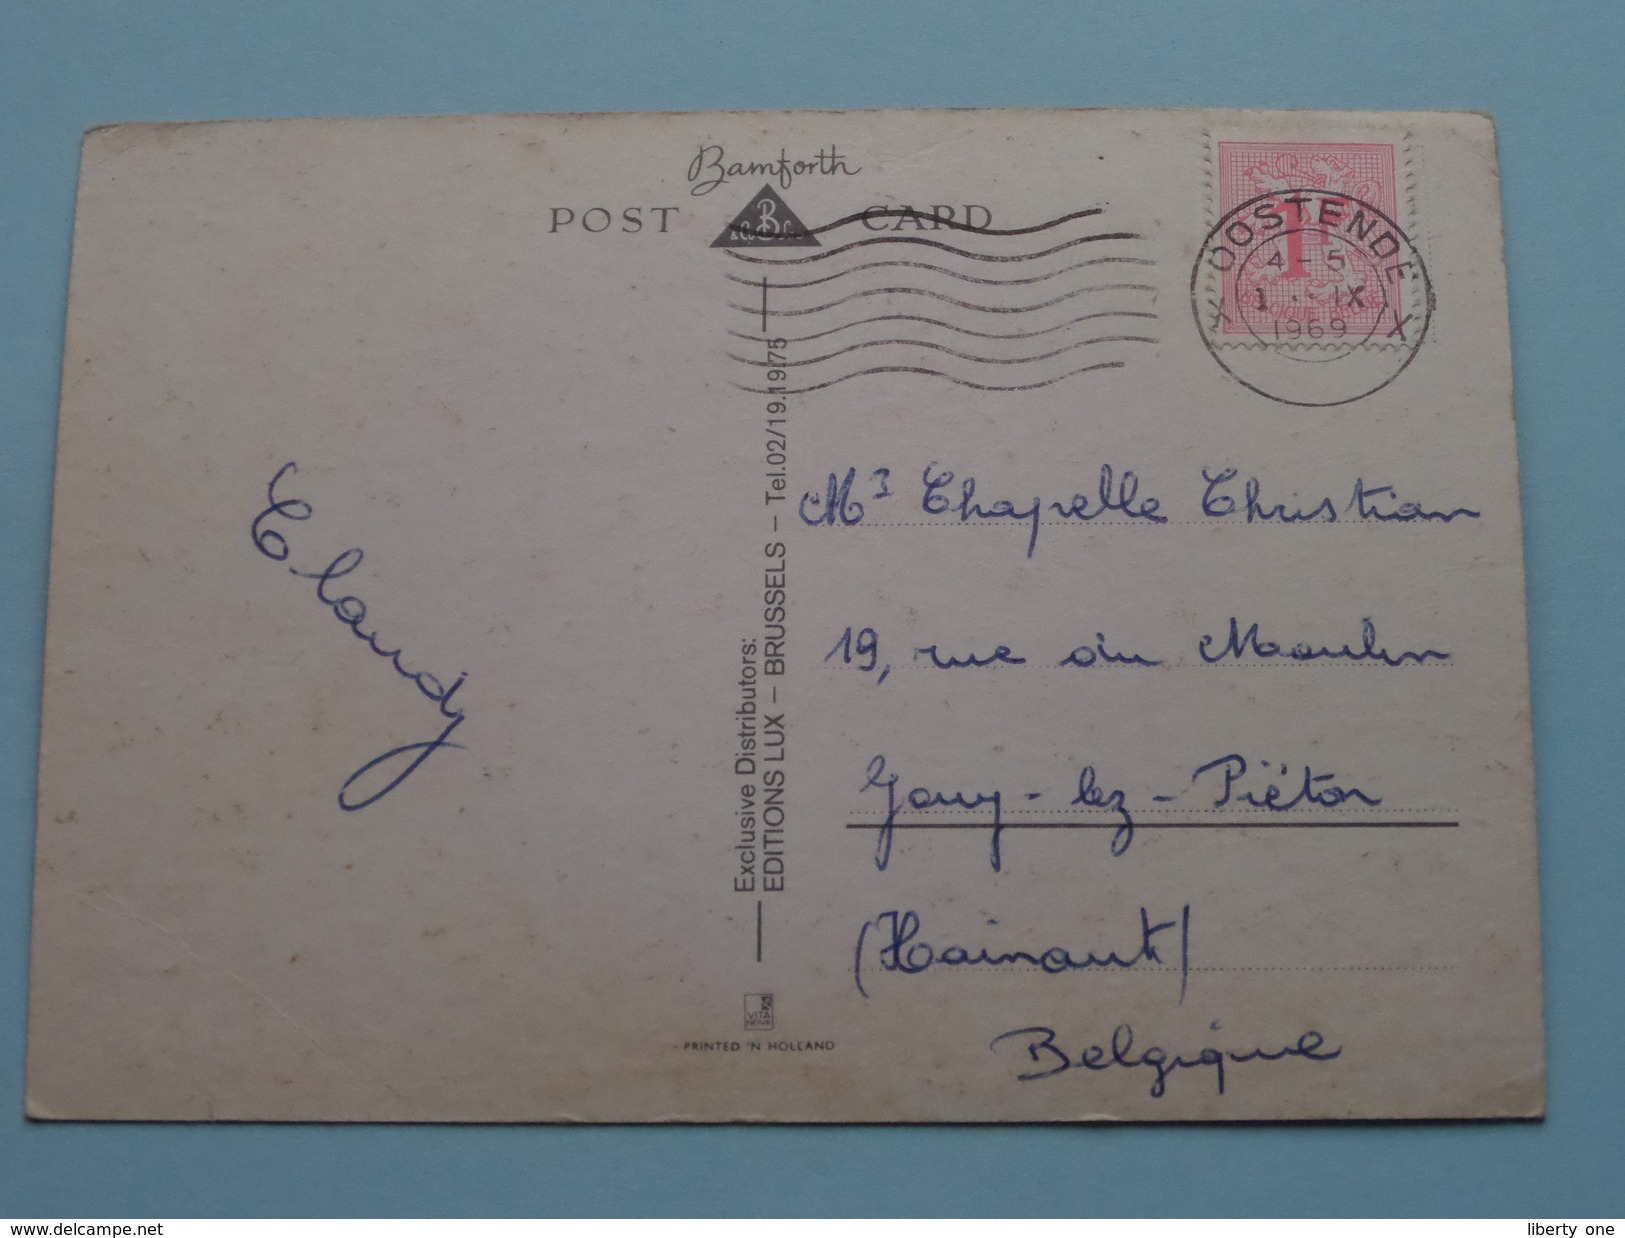 Bamforth
POST CARD
B
OOSTENDE
4-5
1 - IX
1969
X X
1F
Exclusive Distributors:
EDITIONS LUX – BRUSSELS – Tel.02/19.19.75
Claudy
Mr Chapelle Christian
19, rue du Moulin
Gouy-lez-Piéton
(Hainaut)
Belgique
VITA
NOVA
PRINTED 'N HOLLAND
www.delcampe.net
liberty one